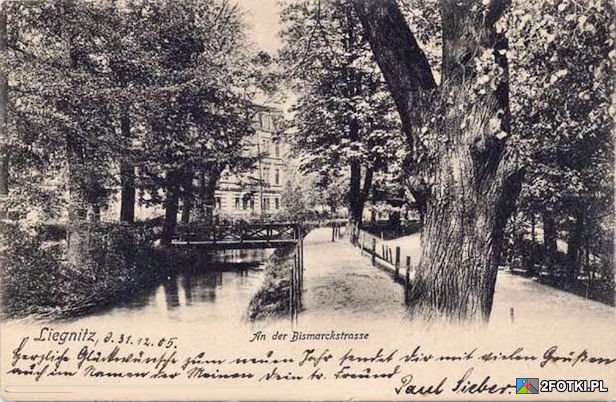 Liegnitz, d. 31.12.05
An der Bismarckstrasse
Herzliche Glückwünsche zum neuen Jahr sendet dir mit vielen Grüßen
auch im Namen der Meinen dein tr. Freund
Paul Sieber.
2FOTKI.PL